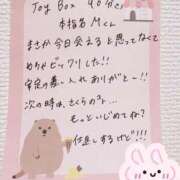 Joy Box 90分
本指名 Mくん
まさか今日会えると思ってなくて
めちゃビックリした!!
安定の差し入れありがとー!!
次の時は、さくらのﾌｪ...
もっといじめてね?
仕返しするけど!!!